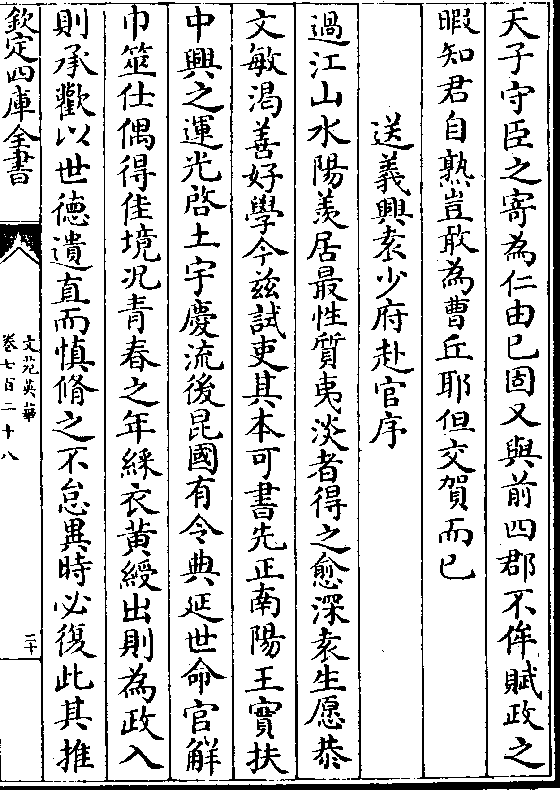 天子守臣之寄為仁由已固又與前四郡不侔賦政之
暇知君自熟豈敢為曹丘耶但交賀而已
送義興袁少府赴官序
過江山水陽羨居最性質夷淡者得之愈深袁生愿恭
文敏渴善好學今兹試吏其本可書先正南陽王實扶
中興之運光啓土宇慶流後昆國有令典延世命官解
巾筮仕偶得佳境况青春之年綵衣黄綬出則為政入
則承歡以世德遺直而慎脩之不怠異時必復此其推
欽定四庫全書
文苑英華
卷七百二十八
二十